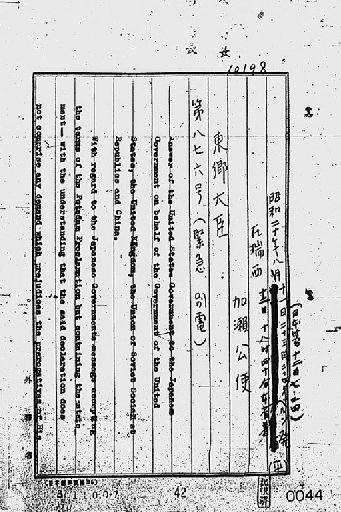 10198
昭和二十年八月
瓦瑞西
加瀬公使
東郷大臣
第八七六号(緊急 別電)
Answer of the United States Government to the Japanese
Government on behalf of the Government of the United
States, the United Kingdom, the Union of Soviet Socialist
Republics and China.
With regard to the Japanese Government's message accepting
the terms of the Potsdam Proclamation but containing the state
ment— with the understanding that the said declaration does
not comprise any demand which prejudices the prerogatives of His
42
0044